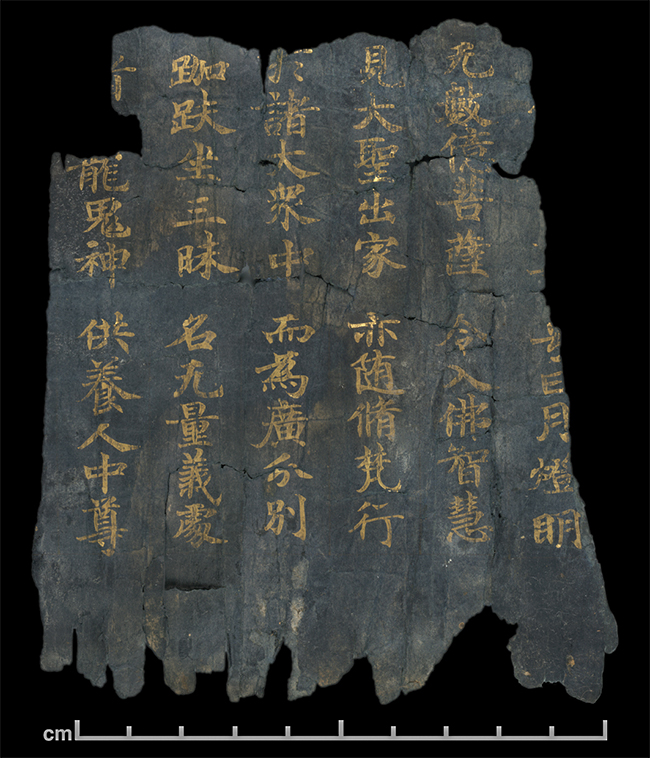 日月燈明
无數億菩薩 令入佛智慧
見大聖出家 亦随脩梵行
於諸大衆中 而為廣分別
跏趺坐三昧 名无量義處
龍鬼神 供養人中尊
cm